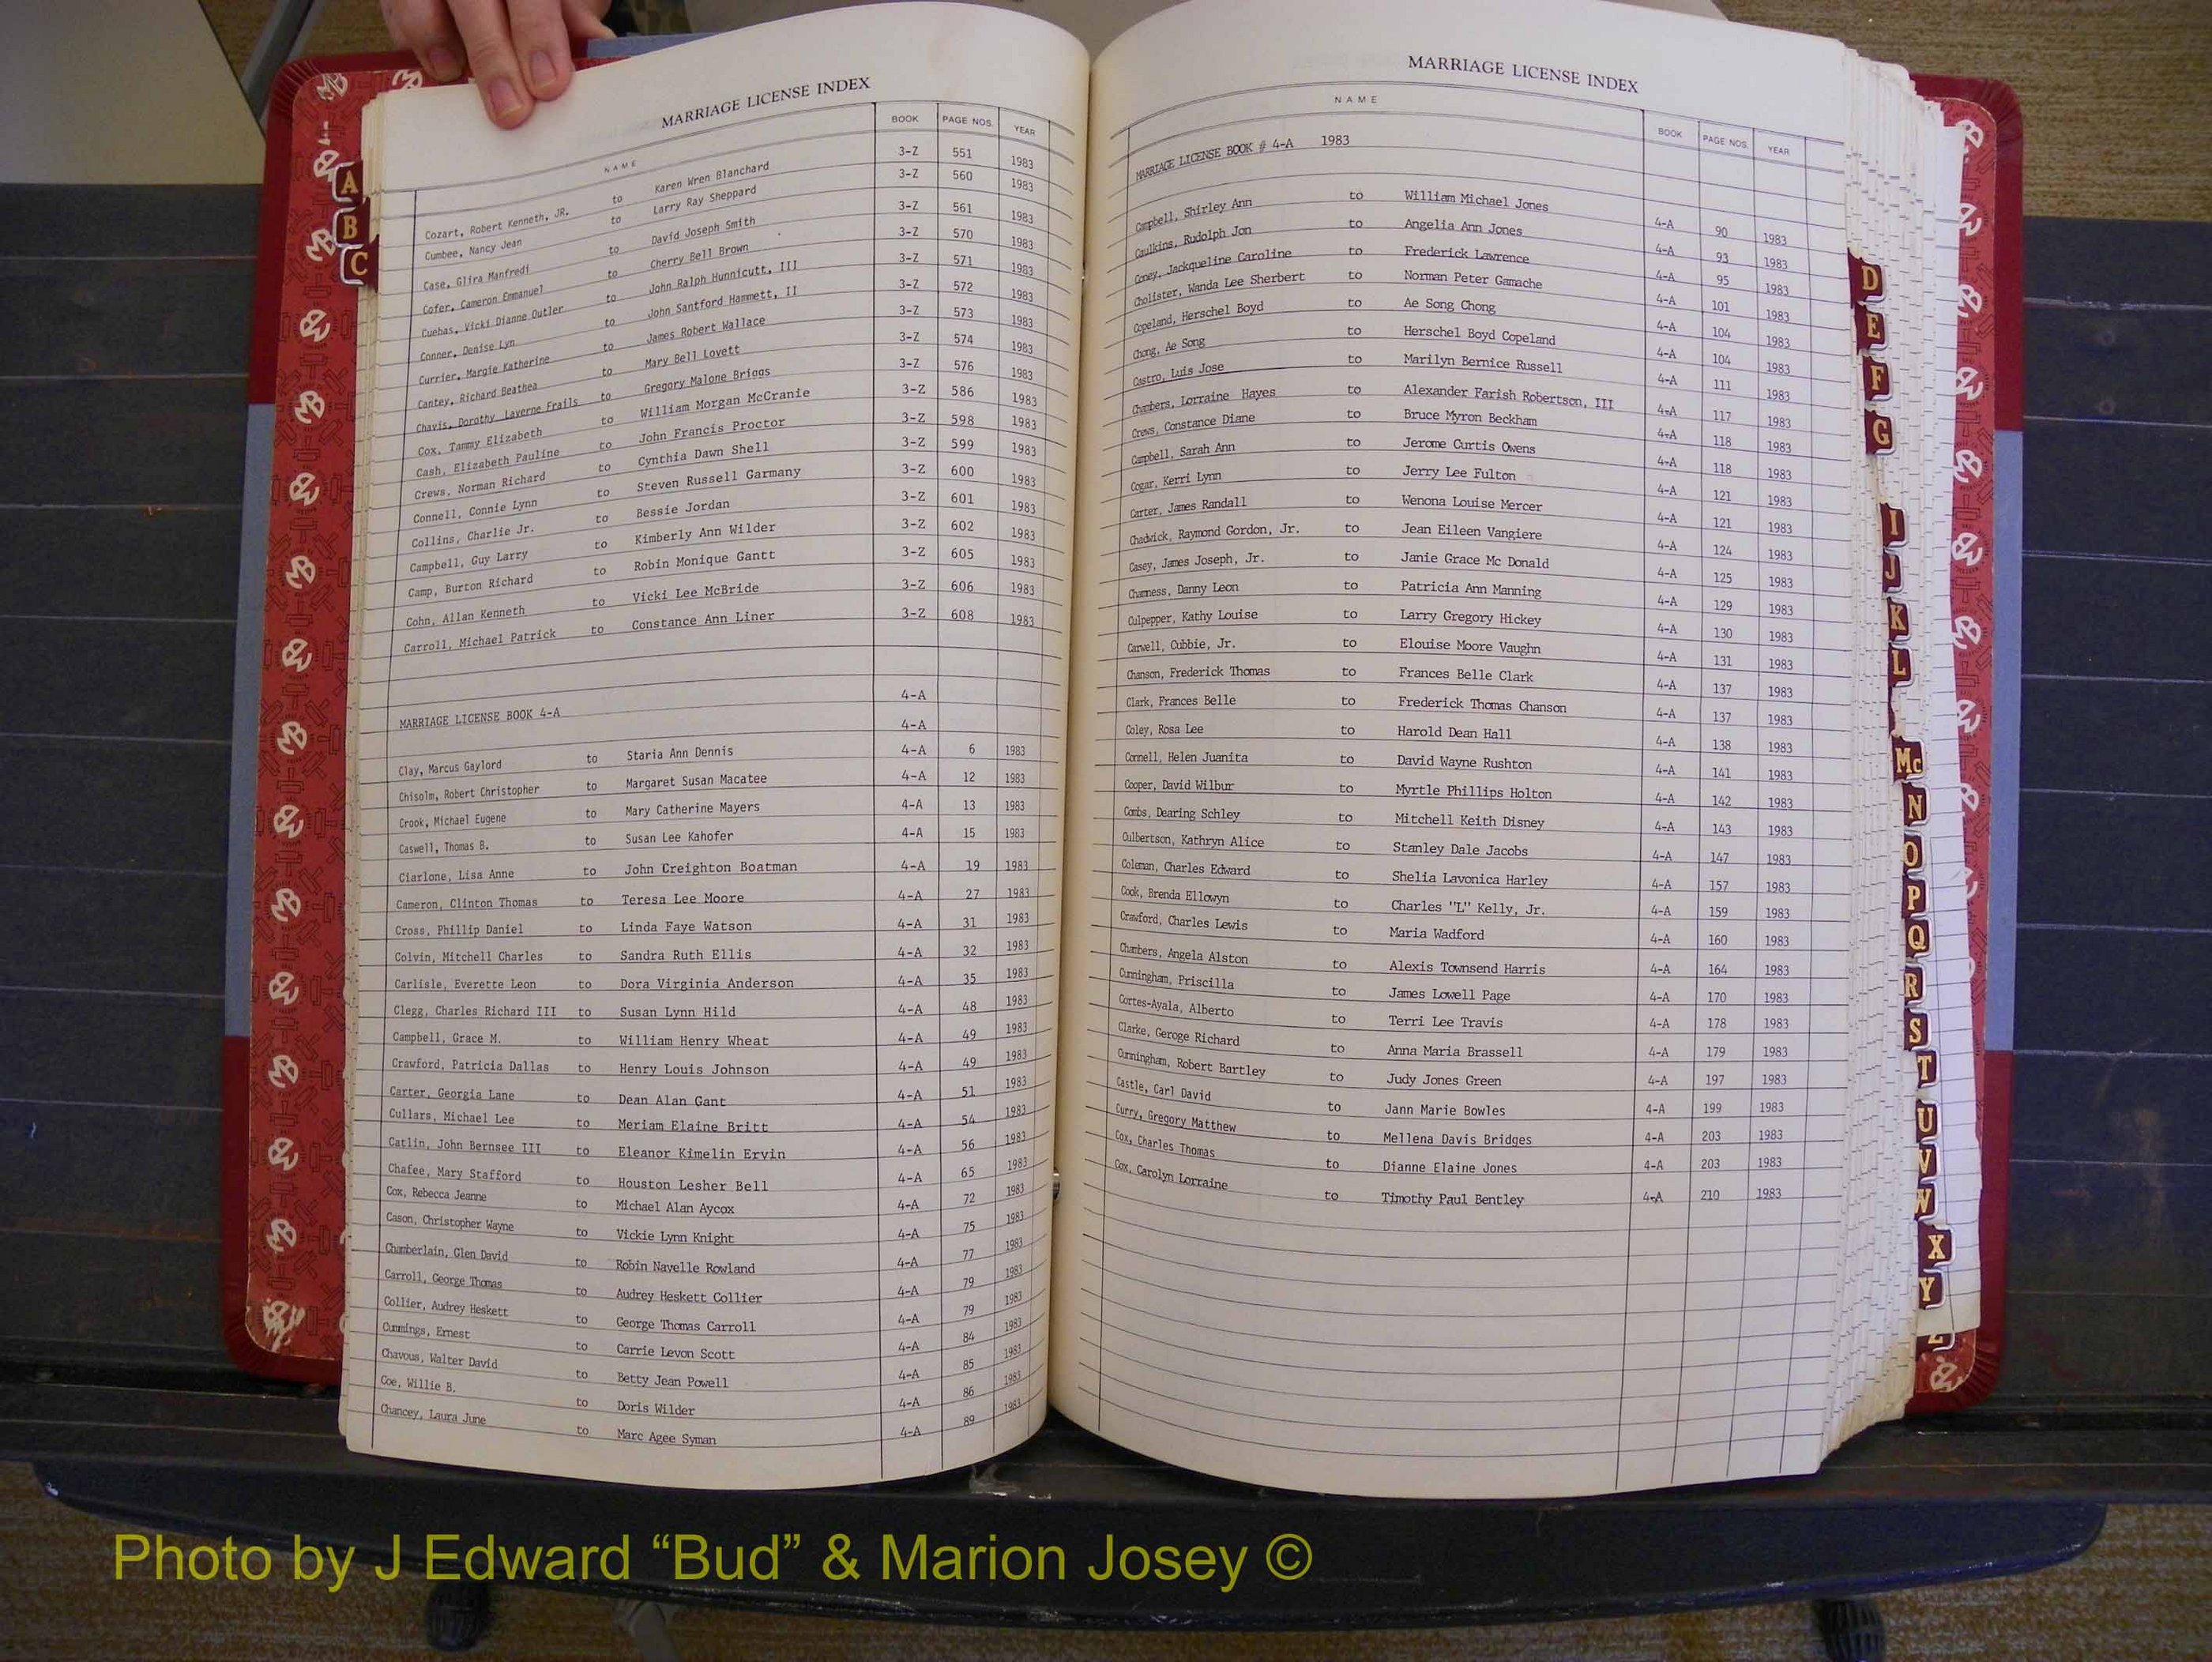 MARRIAGE LICENSE INDEX
NAME BOOK PAGE NOS. YEAR
Cozart, Robert Kenneth, JR. to Karen Wren Blanchard 3-Z 551 1983
Cumbee, Nancy Jean to Larry Ray Sheppard 3-Z 560 1983
Case, Glira Manfredi to David Joseph Smith 3-Z 561 1983
Cofer, Cameron Emmanuel to Cherry Bell Brown 3-Z 570 1983
Cuebas, Vicki Dianne Outler to John Ralph Hunnicutt, III 3-Z 571 1983
Conner, Denise Lyn to John Santford Hammett, II 3-Z 572 1983
Currier, Margie Katherine to James Robert Wallace 3-Z 573 1983
Cantey, Richard Beathea to Mary Bell Lovett 3-Z 574 1983
Chavis, Dorothy Laverne Frails to Gregory Malone Briggs 3-Z 576 1983
Cox, Tammy Elizabeth to William Morgan McCranie 3-Z 586 1983
Cash, Elizabeth Pauline to John Francis Proctor 3-Z 598 1983
Crews, Norman Richard to Cynthia Dawn Shell 3-Z 599 1983
Connell, Connie Lynn to Steven Russell Garmany 3-Z 600 1983
Collins, Charlie Jr. to Bessie Jordan 3-Z 601 1983
Campbell, Guy Larry to Kimberly Ann Wilder 3-Z 602 1983
Camp, Burton Richard to Robin Monique Gantt 3-Z 605 1983
Cohn, Allan Kenneth to Vicki Lee McBride 3-Z 606 1983
Carroll, Michael Patrick to Constance Ann Liner 3-Z 608 1983
MARRIAGE LICENSE BOOK 4-A 4-A
4-A
Clay, Marcus Gaylord to Staria Ann Dennis 4-A 6 1983
Chisolm, Robert Christopher to Margaret Susan Macatee 4-A 12 1983
Crook, Michael Eugene to Mary Catherine Mayers 4-A 13 1983
Caswell, Thomas B. to Susan Lee Kahofer 4-A 15 1983
Ciarlone, Lisa Anne to John Creighton Boatman 4-A 19 1983
Cameron, Clinton Thomas to Teresa Lee Moore 4-A 27 1983
Cross, Phillip Daniel to Linda Faye Watson 4-A 31 1983
Colvin, Mitchell Charles to Sandra Ruth Ellis 4-A 32 1983
Carlisle, Everette Leon to Dora Virginia Anderson 4-A 35 1983
Clegg, Charles Richard III to Susan Lynn Hild 4-A 48 1983
Campbell, Grace M. to William Henry Wheat 4-A 49 1983
Crawford, Patricia Dallas to Henry Louis Johnson 4-A 49 1983
Carter, Georgia Lane to Dean Alan Gant 4-A 51 1983
Cullars, Michael Lee to Meriam Elaine Britt 4-A 54 1983
Catlin, John Bernsee III to Eleanor Kimelin Ervin 4-A 56 1983
Chafee, Mary Stafford to Houston Lesher Bell 4-A 65 1983
Cox, Rebecca Jeanne to Michael Alan Aycox 4-A 72 1983
Cason, Christopher Wayne to Vickie Lynn Knight 4-A 75 1983
Chamberlain, Glen David to Robin Navelle Rowland 4-A 77 1983
Carroll, George Thomas to Audrey Heskett Collier 4-A 79 1983
Collier, Audrey Heskett to George Thomas Carroll 4-A 79 1983
Cummings, Ernest to Carrie Levon Scott 4-A 84 1983
Chavous, Walter David to Betty Jean Powell 4-A 85 1983
Coe, Willie B. to Doris Wilder 4-A 86 1983
Chancey, Laura June to Marc Agee Syman 4-A 89 1983
A
B
C
MARRIAGE LICENSE INDEX
NAME BOOK PAGE NOS. YEAR
MARRIAGE LICENSE BOOK # 4-A 1983
Campbell, Shirley Ann to William Michael Jones 4-A 90 1983
Caulkins, Rudolph Jon to Angelia Ann Jones 4-A 93 1983
Coney, Jackqueline Caroline to Frederick Lawrence 4-A 95 1983
Cholister, Wanda Lee Sherbert to Norman Peter Gamache 4-A 101 1983
Copeland, Herschel Boyd to Ae Song Chong 4-A 104 1983
Chong, Ae Song to Herschel Boyd Copeland 4-A 104 1983
Castro, Luis Jose to Marilyn Bernice Russell 4-A 111 1983
Chambers, Lorraine Hayes to Alexander Farish Robertson, III 4-A 117 1983
Crews, Constance Diane to Bruce Myron Beckham 4-A 118 1983
Campbell, Sarah Ann to Jerome Curtis Owens 4-A 118 1983
Cogar, Kerri Lynn to Jerry Lee Fulton 4-A 121 1983
Carter, James Randall to Wenona Louise Mercer 4-A 121 1983
Chadwick, Raymond Gordon, Jr. to Jean Eileen Vangiere 4-A 124 1983
Casey, James Joseph, Jr. to Janie Grace Mc Donald 4-A 125 1983
Chamness, Danny Leon to Patricia Ann Manning 4-A 129 1983
Culpepper, Kathy Louise to Larry Gregory Hickey 4-A 130 1983
Carwell, Cubbie, Jr. to Elouise Moore Vaughn 4-A 131 1983
Chanson, Frederick Thomas to Frances Belle Clark 4-A 137 1983
Clark, Frances Belle to Frederick Thomas Chanson 4-A 137 1983
Coley, Rosa Lee to Harold Dean Hall 4-A 138 1983
Connell, Helen Juanita to David Wayne Rushton 4-A 141 1983
Cooper, David Wilbur to Myrtle Phillips Holton 4-A 142 1983
Combs, Dearing Schley to Mitchell Keith Disney 4-A 143 1983
Culbertson, Kathryn Alice to Stanley Dale Jacobs 4-A 147 1983
Coleman, Charles Edward to Shelia Lavonica Harley 4-A 157 1983
Cook, Brenda Ellowyn to Charles "L" Kelly, Jr. 4-A 159 1983
Crawford, Charles Lewis to Maria Wadford 4-A 160 1983
Chambers, Angela Alston to Alexis Townsend Harris 4-A 164 1983
Cunningham, Priscilla to James Lowell Page 4-A 170 1983
Cortes-Ayala, Alberto to Terri Lee Travis 4-A 178 1983
Clarke, Geroge Richard to Anna Maria Brassell 4-A 179 1983
Cunningham, Robert Bartley to Judy Jones Green 4-A 197 1983
Castle, Carl David to Jann Marie Bowles 4-A 199 1983
Curry, Gregory Matthew to Mellena Davis Bridges 4-A 203 1983
Cox, Charles Thomas to Dianne Elaine Jones 4-A 203 1983
Cox, Carolyn Lorraine to Timothy Paul Bentley 4-A 210 1983
D
E
F
G
I
J
K
L
Mc
N
O
P
Q
R
S
T
U
V
W
X
Y
Z
Photo by J Edward “Bud” & Marion Josey ©